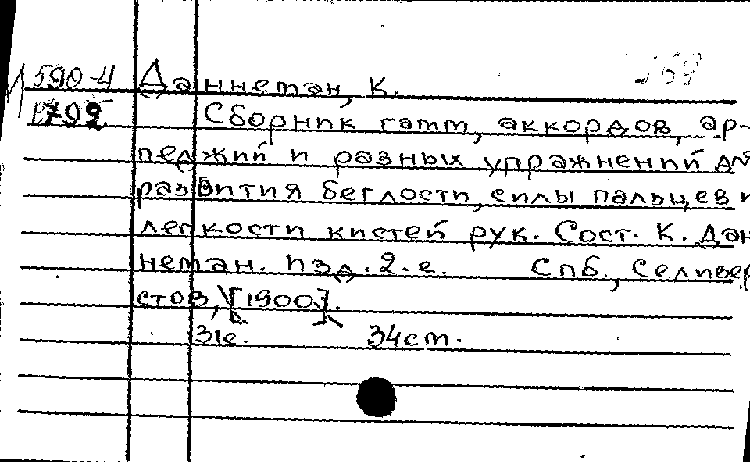 590-4 Даннеман, К.
1792 Сборник гамм, аккордов, ар-
педжий и разных упражнений дл
развития беглости, силы пальцев и
легкости кистей рук. Сост. К. Дан
неман. Изд. 2-е. Спб., Селивер
стов, [1900].
31с. 34см.